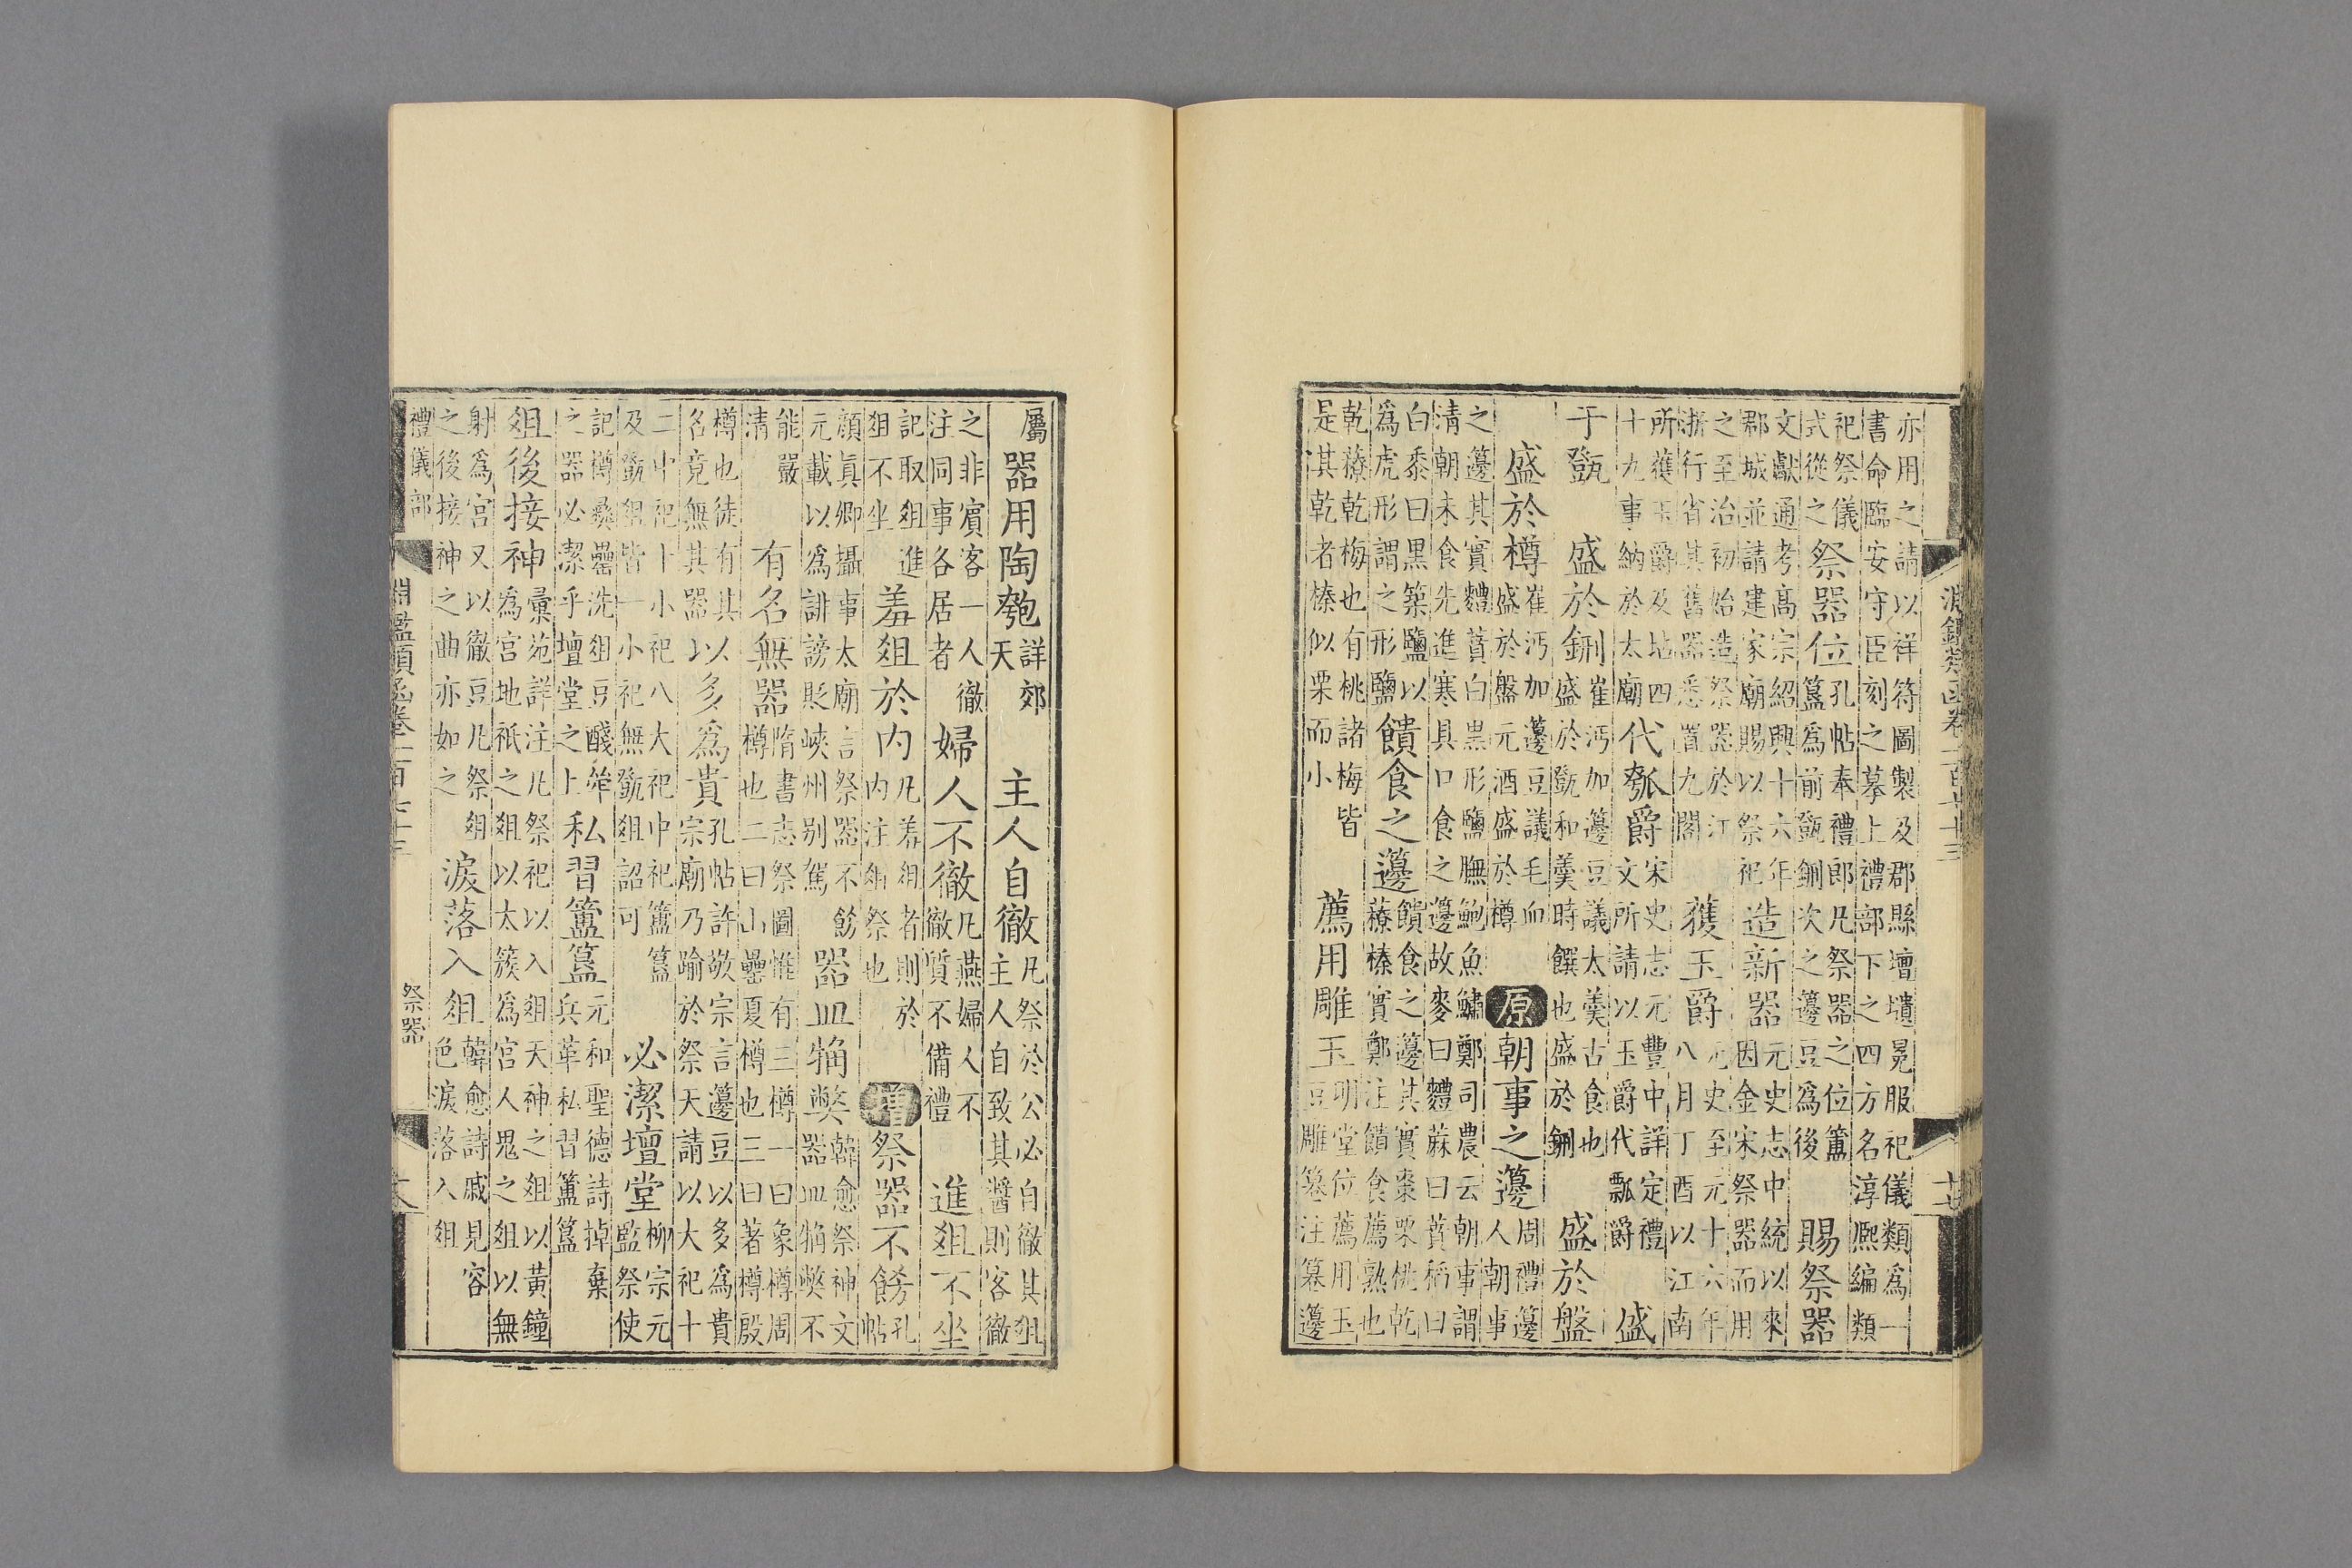 亦用之請以祥符圖製及郡縣壇壝冕服祀儀類為一書命臨安守臣刻之摹上禮部下之四方名淳熙編類
祀祭儀式從之祭器位孔帖奉禮郎凡祭器之位簠簋為前㽅鉶次之籩豆為後賜祭器
文獻通考高宗紹興十六年郡城並請建家廟賜以祭祀造新器元史志中統以來因金宋祭器而用
之至治初始造祭器於江浙行省其舊器悉置九閣獲玉爵元史至元十六年八月丁酉以江南
所獲玉爵及坫四十九事納於太廟代匏爵宋史志元豐中詳定禮文所請以玉爵代瓢爵盛
于㽅盛於鉶崔沔加籩豆議太羹古食也盛於㽅和羹時饌也盛於鉶盛於盤
盛於樽崔沔加籩豆議毛血盛於盤元酒盛於樽原朝事之籩周禮籩人朝事
之籩其實麷蕡白黑形鹽膴鮑魚鱐鄭司農云朝事謂清朝未食先進寒具口食之籩故麥曰麷蔴曰蕡稻曰
白黍曰黑築鹽以為虎形謂之形鹽饋食之籩饋食之籩其實棗栗桃乾䕩榛實鄭注饋食薦熟也
乾䕩乾梅也有桃諸梅皆是其乾者榛似栗而小薦用雕玉明堂位薦用玉豆雕篹注篹籩
屬器用陶匏詳郊天主人自徹凡祭於公必自徹其俎主人自致其醬則客徹
之非賓客一人徹注同事各居者婦人不徹凡燕婦人不徹質不備禮進俎不坐
記取俎進俎不坐羞俎於内凡羞俎者則於内注俎祭也增祭器不飭孔帖
顏眞卿攝事太廟言祭器不飭元載以為誹謗貶峽州别駕器皿觕弊韓愈祭神文器皿觕弊不
能嚴清有名無器隋書志祭圖惟有三樽一曰象樽周樽也二曰山罍夏樽也三曰著樽殷
樽也徒有其名竟無其器以多為貴孔帖許敬宗言籩豆以多為貴宗廟乃踰於祭天請以大祀十
二中祀十小祀八大祀中祀簠簋及㽅俎皆一小祀無㽅俎詔可必潔壇堂柳宗元監祭使
記樽彝罍洗俎豆醆斝之器必潔乎壇堂之上私習簠簋元和聖德詩掉棄兵革私習簠簋
俎後接神彙苑詳注凡祭祀以入俎天神之俎以黃鐘為宮地祇之俎以太簇為宮人鬼之俎以無
射為宮又以徹豆凡祭俎之後接神之曲亦如之淚落入俎韓愈詩戚見容色淚落入俎
禮儀部 祭器